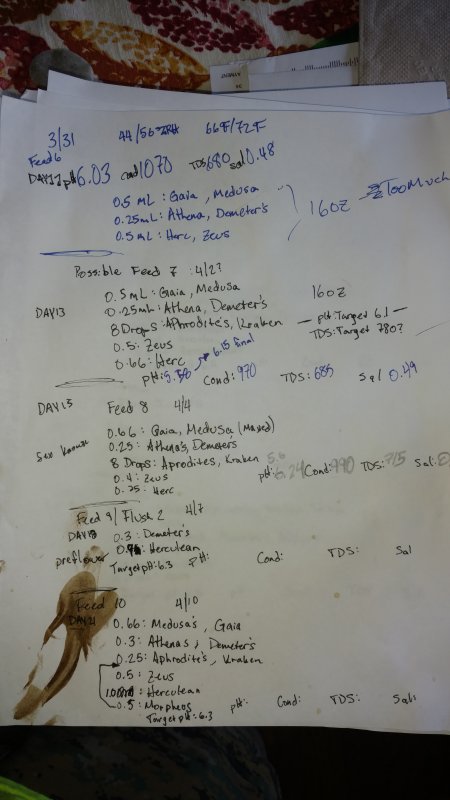 3/31 44/56 %RH 66F/72F
Feed 6
DAY12 pH 6.03 cond 1070 TDS 680 sal 0.48
0.5 mL : Gaia, Medusa
0.25mL : Athena, Demeter's
0.5 mL : Herc, Zeus
16OZ
Too Much
Possible Feed 7 : 4/2?
DAY13
0.5 mL : Gaia, Medusa
0.25mL : Athena, Demeter's
8 Drops : Aphrodite's, Kraken
0.5 : Zeus
0.66 : Herc
16OZ
pH Target 6.1
TDS: Target 780?
pH: 5.50 → 6.15 final Cond: 970 TDS: 685 Sal 0.49
DAY15 Feed 8 4/4
Sex Known
0.66 : Gaia, Medusa (Maxed)
0.25 : Athena's, Demeter's
8 Drops : Aprodites, Kraken
0.4 : Zeus
0.25 : Herc
5.6
pH: 6.24 Cond: 990 TDS: 715 Sal:
Feed 9/ Flush 2 4/7
DAY18
preflower
0.3 : Demeter's
Herculean
Target pH : 6.3 pH: Cond: TDS: Sal
Feed 10 4/10
DAY21
0.66 : Medusa's, Gaia
0.3 : Athenas, Demeter's
0.25 : Aphrodite's, Kraken
0.5 : Zeus
: Herculean
0.5 : Morpheus
Target pH : 6.3 pH: Cond: TDS: Sal: